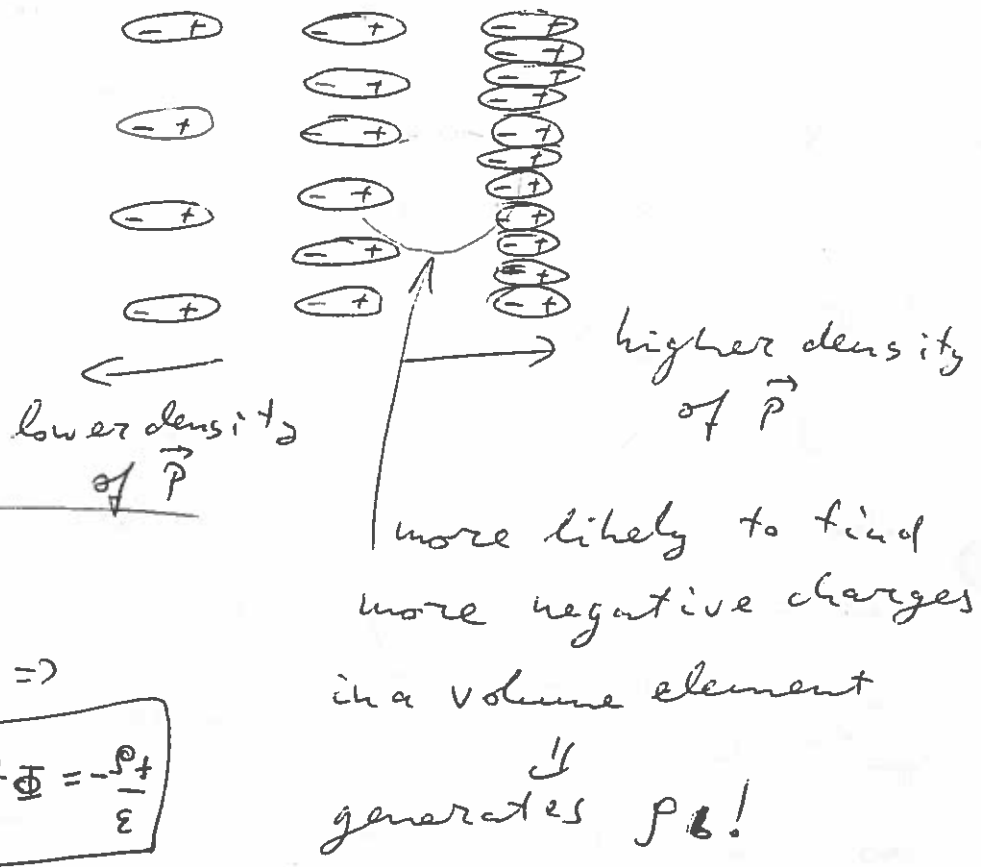 - + - + - +
- + - +
- + - +
- + - +
- + - + - +
- +
- + - +
- + - + - +
- + - +
- +
- + - + - +
higher density
of P⃗
lower density
of P⃗
more likely to find
more negative charges
in a volume element
⇓
generates ρb!
=>
Φ = -ρf/ε